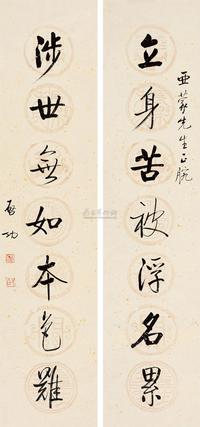 亜蒙先生正腕
立身苦被浮名累
涉世無如本色難
啟功